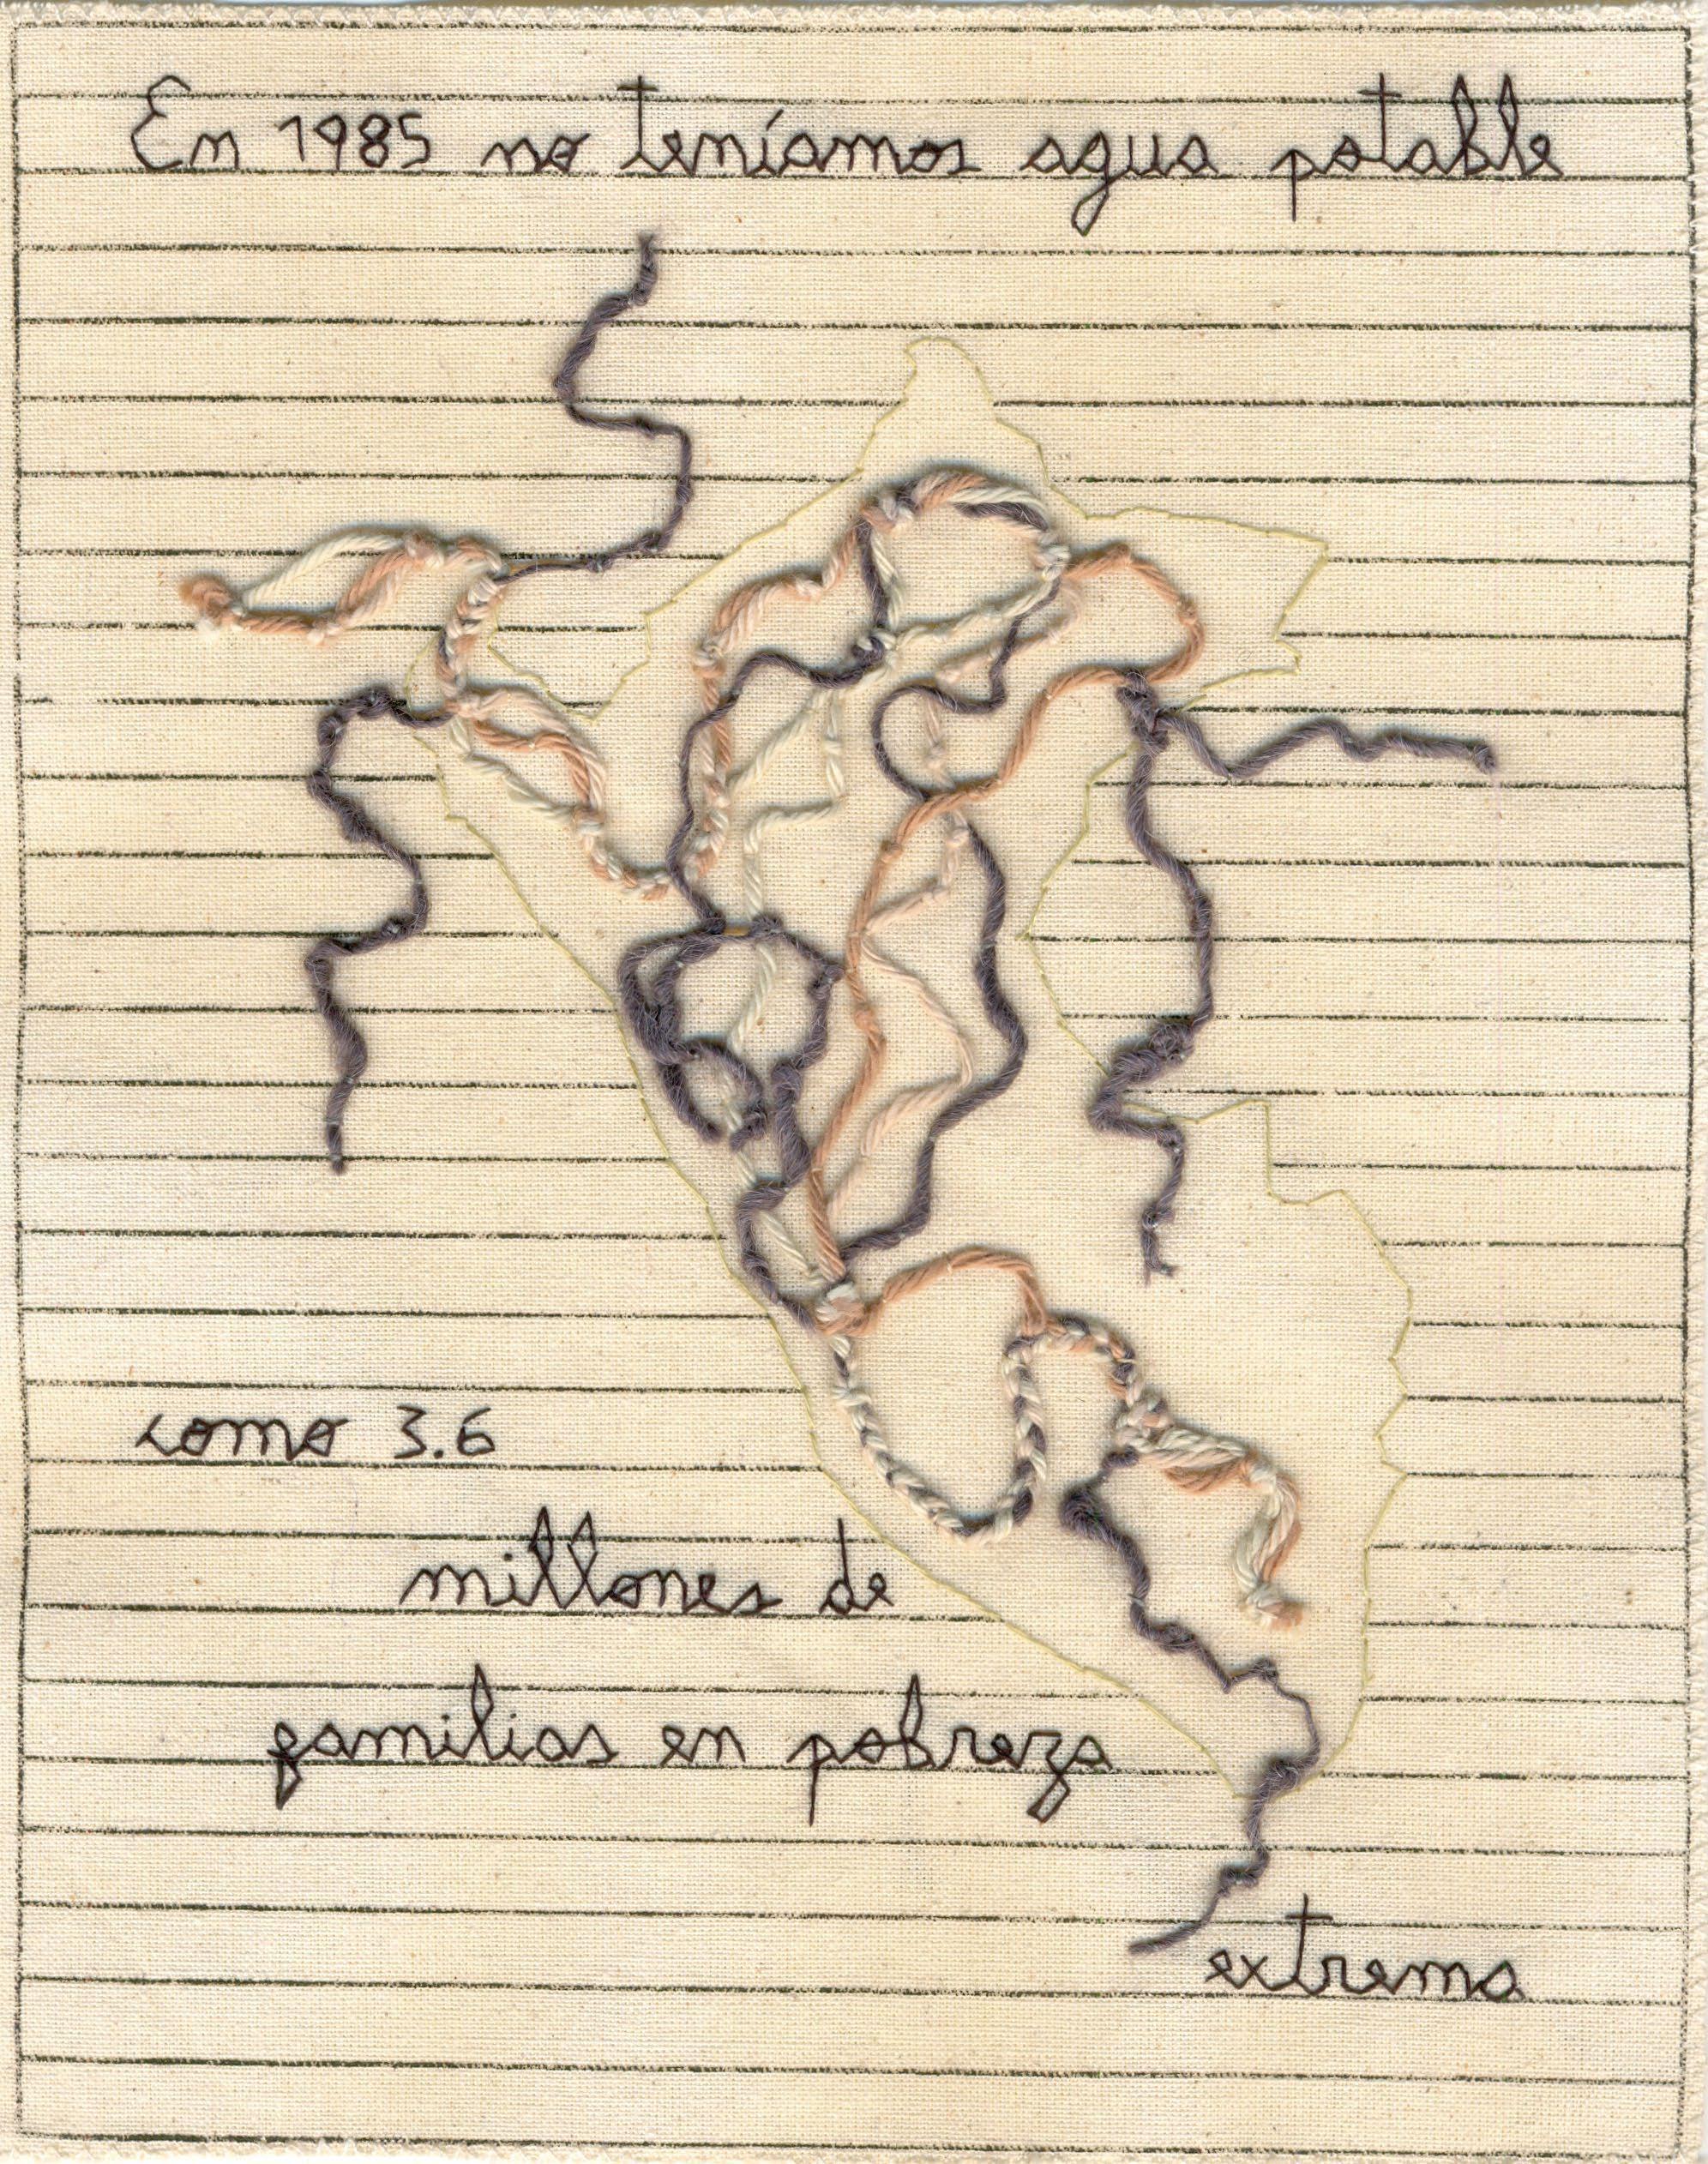 En 1985 no teníamos agua potable
como 3.6
millones de
familias en pobreza
extrema